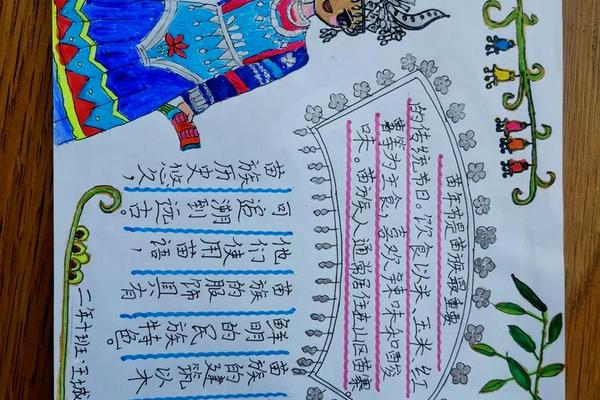 苗年节是苗族最重要
的传统节日。饮食以米、玉米、红
薯等为主食,喜欢辣味和酸
味。苗族人通常居住在山区苗寨
苗族历史悠久,
可追溯到远古。
他们使用苗语,
苗族的服饰具有
鲜明的民族特色。
苗族的建筑以木
二年十班:王城